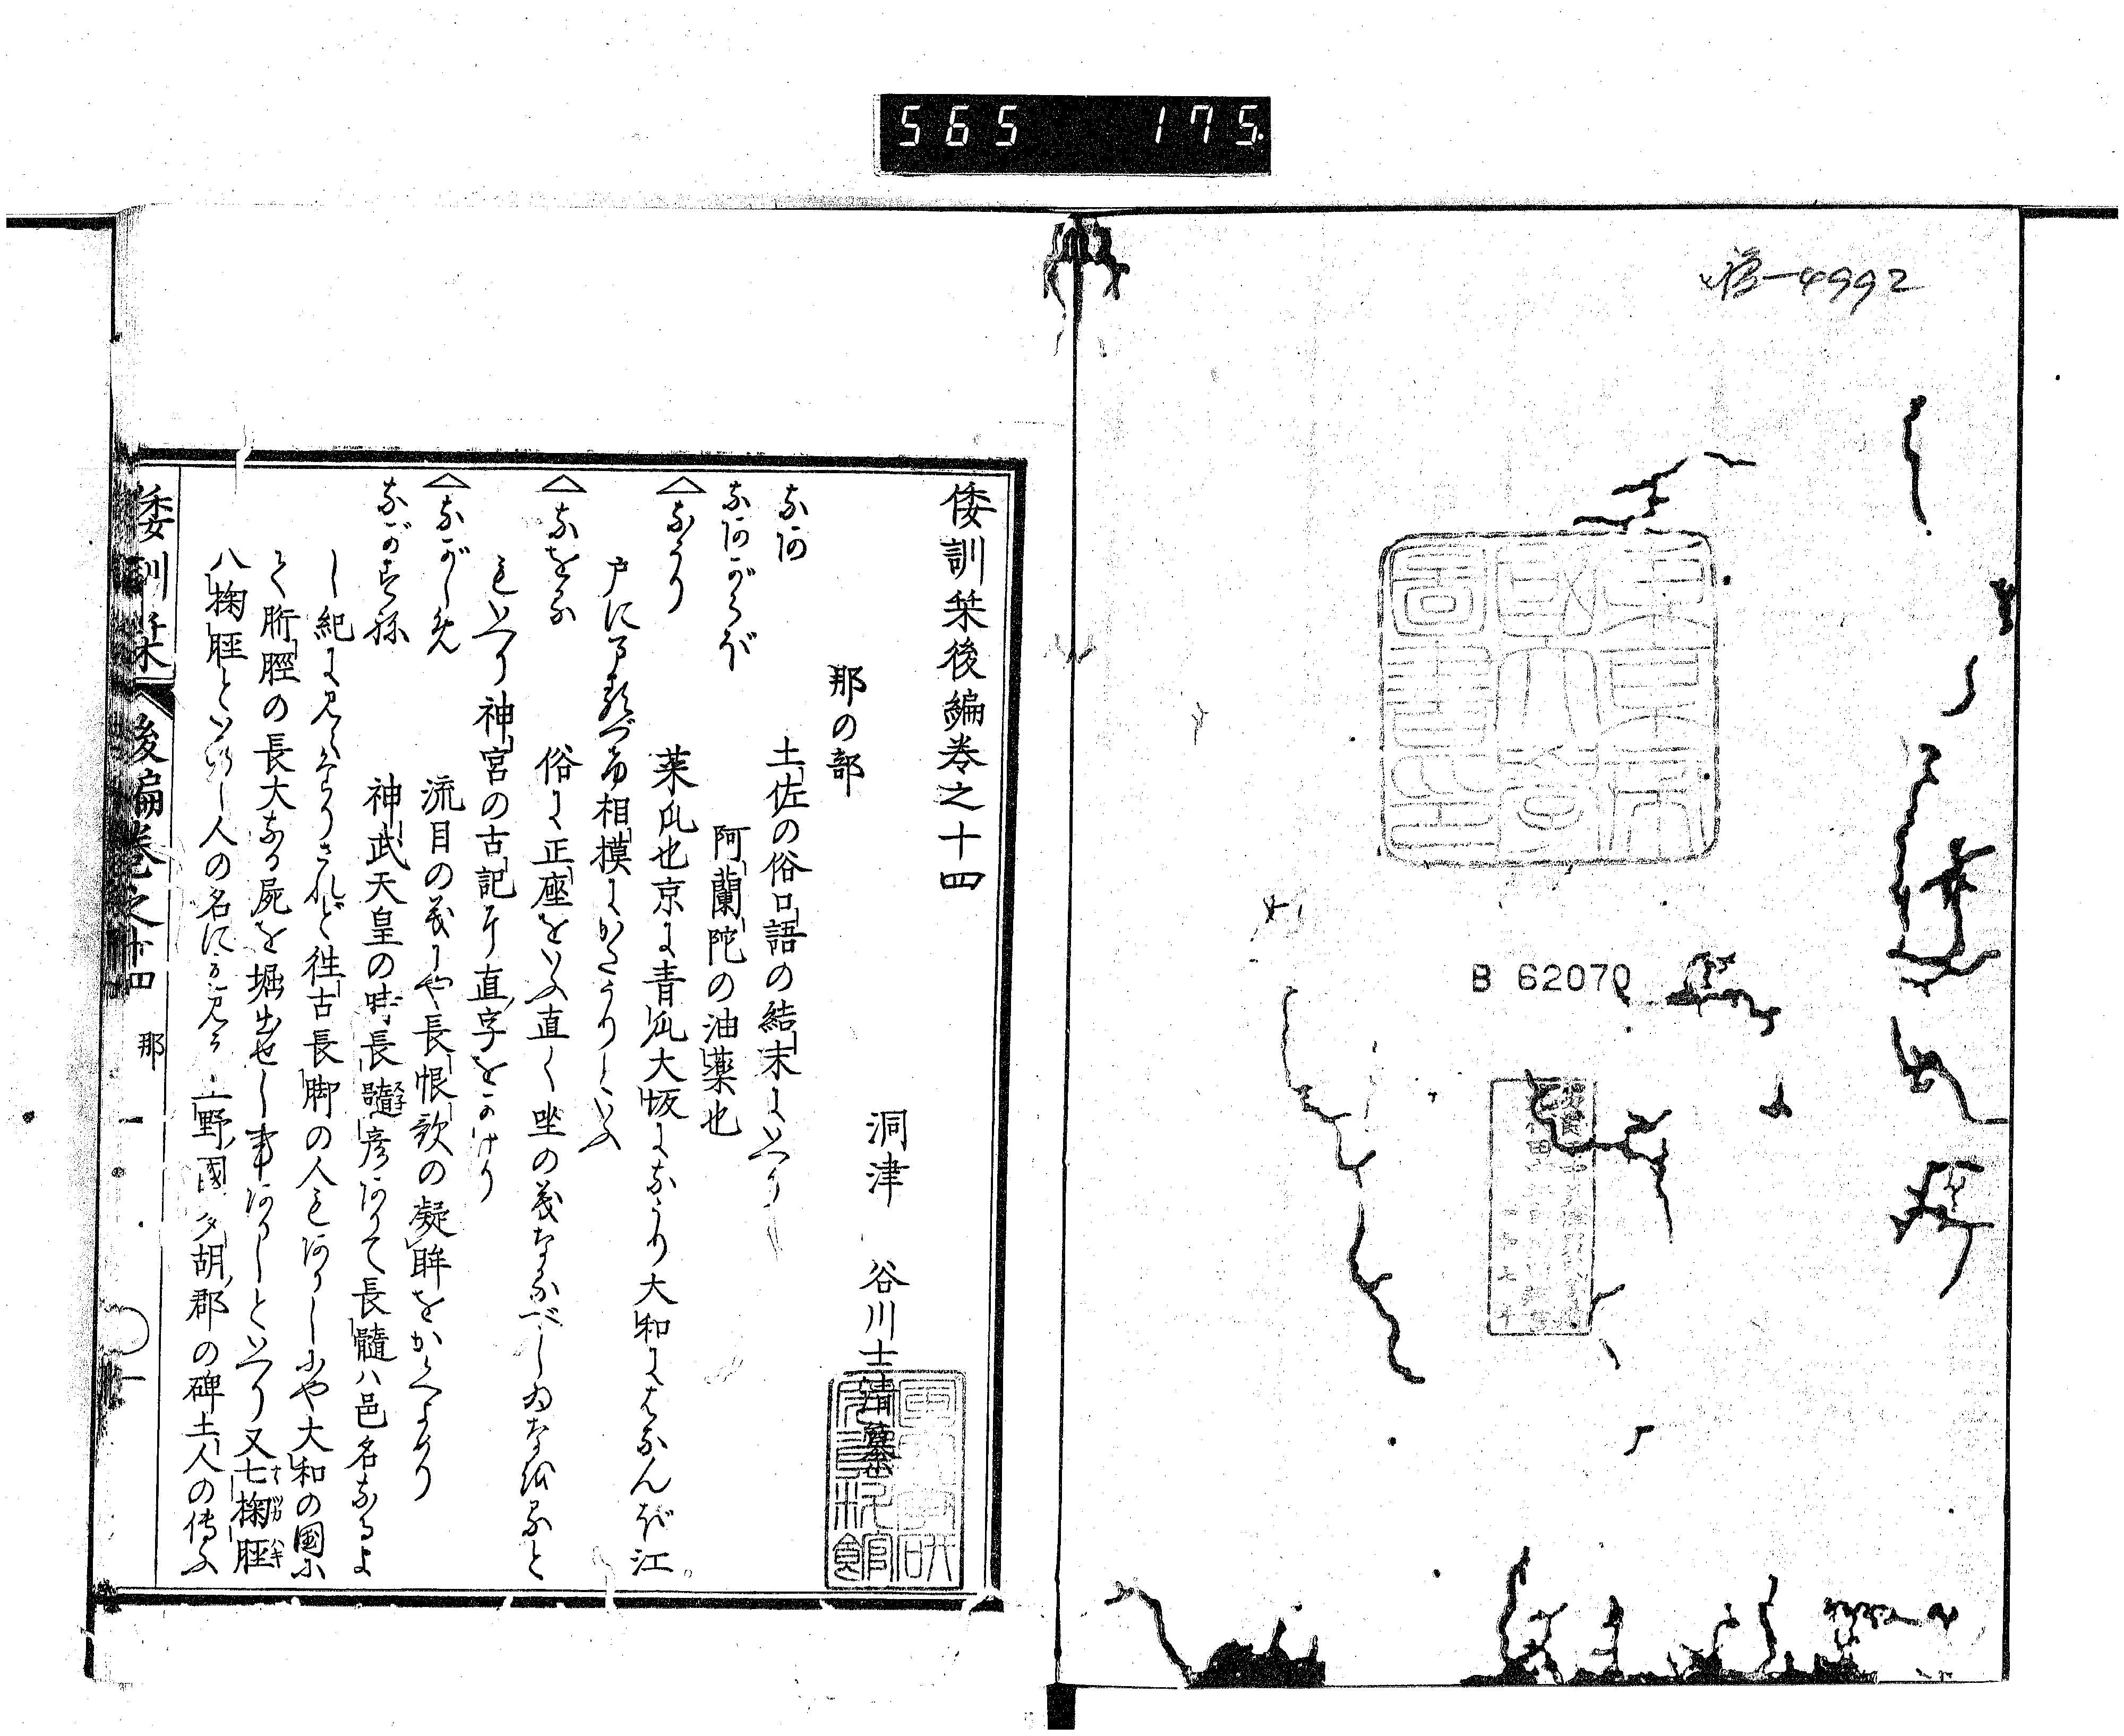 565 175
修-4992
東京帝
國大學
圖書印
B 62070
倭訓栞後編卷之十四
洞津 谷川士清纂
那の部
なあ 土佐の俗口語の結末にいへり
なあがらば 阿蘭陀の油薬也
△なうり 菜瓜也京に青瓜大坂になうり大和にはなんば江
戸にてまるづけ相摸にかたうりといふ
△なをる 俗に正座をいふ直く坐の義なるべしゐなほると
もいへり神宮の古記に直字をかけり
△ながしめ 流目の義にや長恨歌の凝眸をかくよめり
ながすね 神武天皇の時長髓彦ありて長髓ハ邑名なるよ
し紀に見えたりされど往古長脚の人もありしにや大和の國に
て胻脛の長大なる屍を堀出せし事ありしといへり又七掬脛
八掬脛といひし人の名にも見ゆ上野國多胡郡の碑土人の傳ふ
倭訓栞 後編卷之十四 那 一